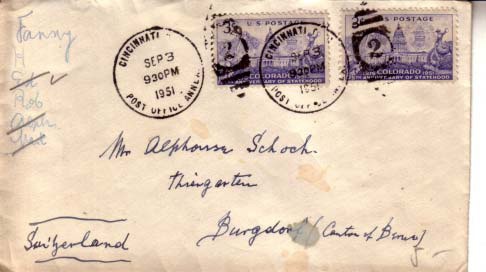 Fanny
H
Rob
Alph.
CINCINNATI
SEP 3
930 PM
1951
POST OFFICE ANNEX
3¢ U.S. POSTAGE
1876 COLORADO 1951
75th ANNIVERSARY OF STATEHOOD
CINCINNATI
SEP 3
930 PM
1951
POST OFFICE ANNEX
3¢ U.S. POSTAGE
2
1876 COLORADO 1951
75th ANNIVERSARY OF STATEHOOD
Mr Alphonse Schoch.
Thiergarten
Burgdorf (Canton of Berne)
Switzerland